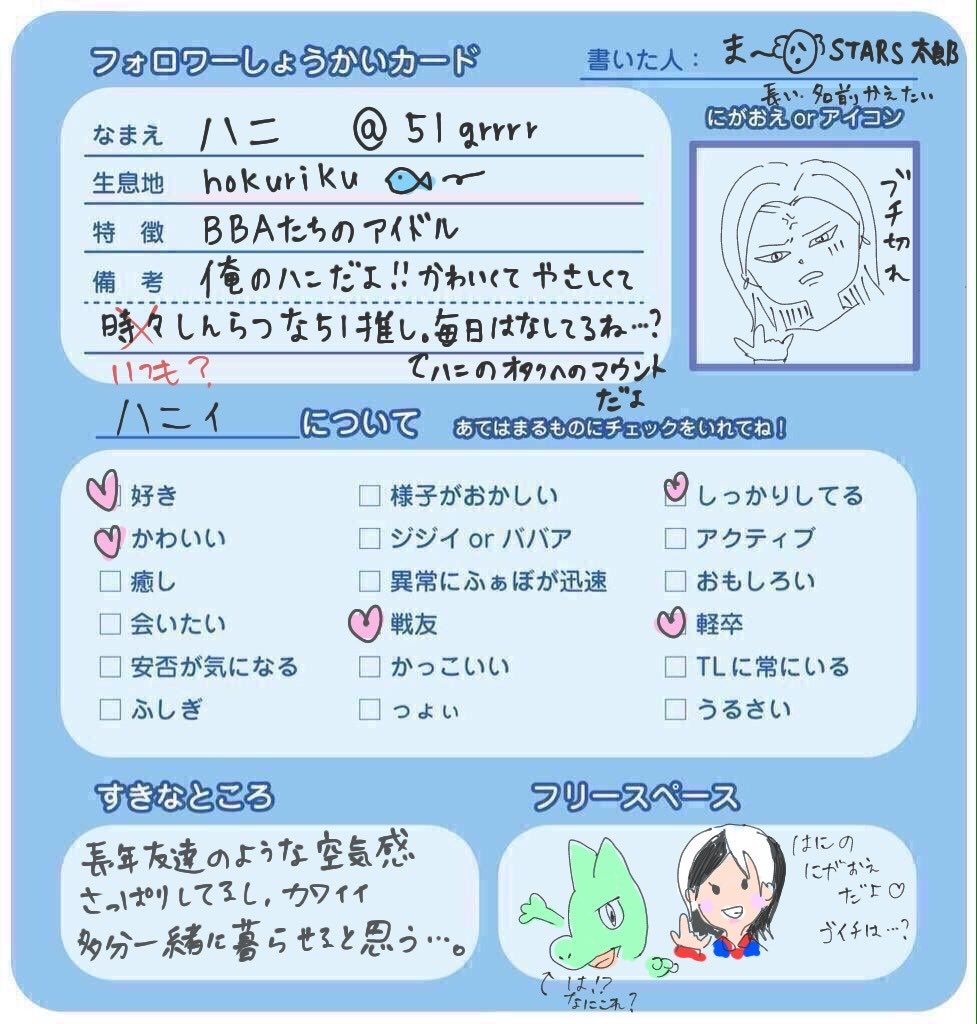 フォロワーしょうかいカード
書いた人： ま〜 STARS太郎
長い、名前かえたい
なまえ ハニ @51grrrr
生息地 hokuriku
特 徴 BBAたちのアイドル
備 考 俺のハニだよ!!かわいくてやさしくて
時々しんらつな51推し。毎日はなしてるね…?
いつも？
てハニのオタクへのマウント
だよ
にがおえorアイコン
ブチ切れ
ハニィについて あてはまるものにチェックをいれてね！
好き 様子がおかしい しっかりしてる
かわいい ジジイorババア アクティブ
癒し 異常にふぁぼが迅速 おもしろい
会いたい 戦友 軽卒
安否が気になる かっこいい TLに常にいる
ふしぎ つょぃ うるさい
すきなところ
長年友達のような空気感
さっぱりしてるし、カワイイ
多分一緒に暮らせると思う…。
フリースペース
はにの
にがおえ
だよ♡
ゴイチは…?
は!?
なにこれ？